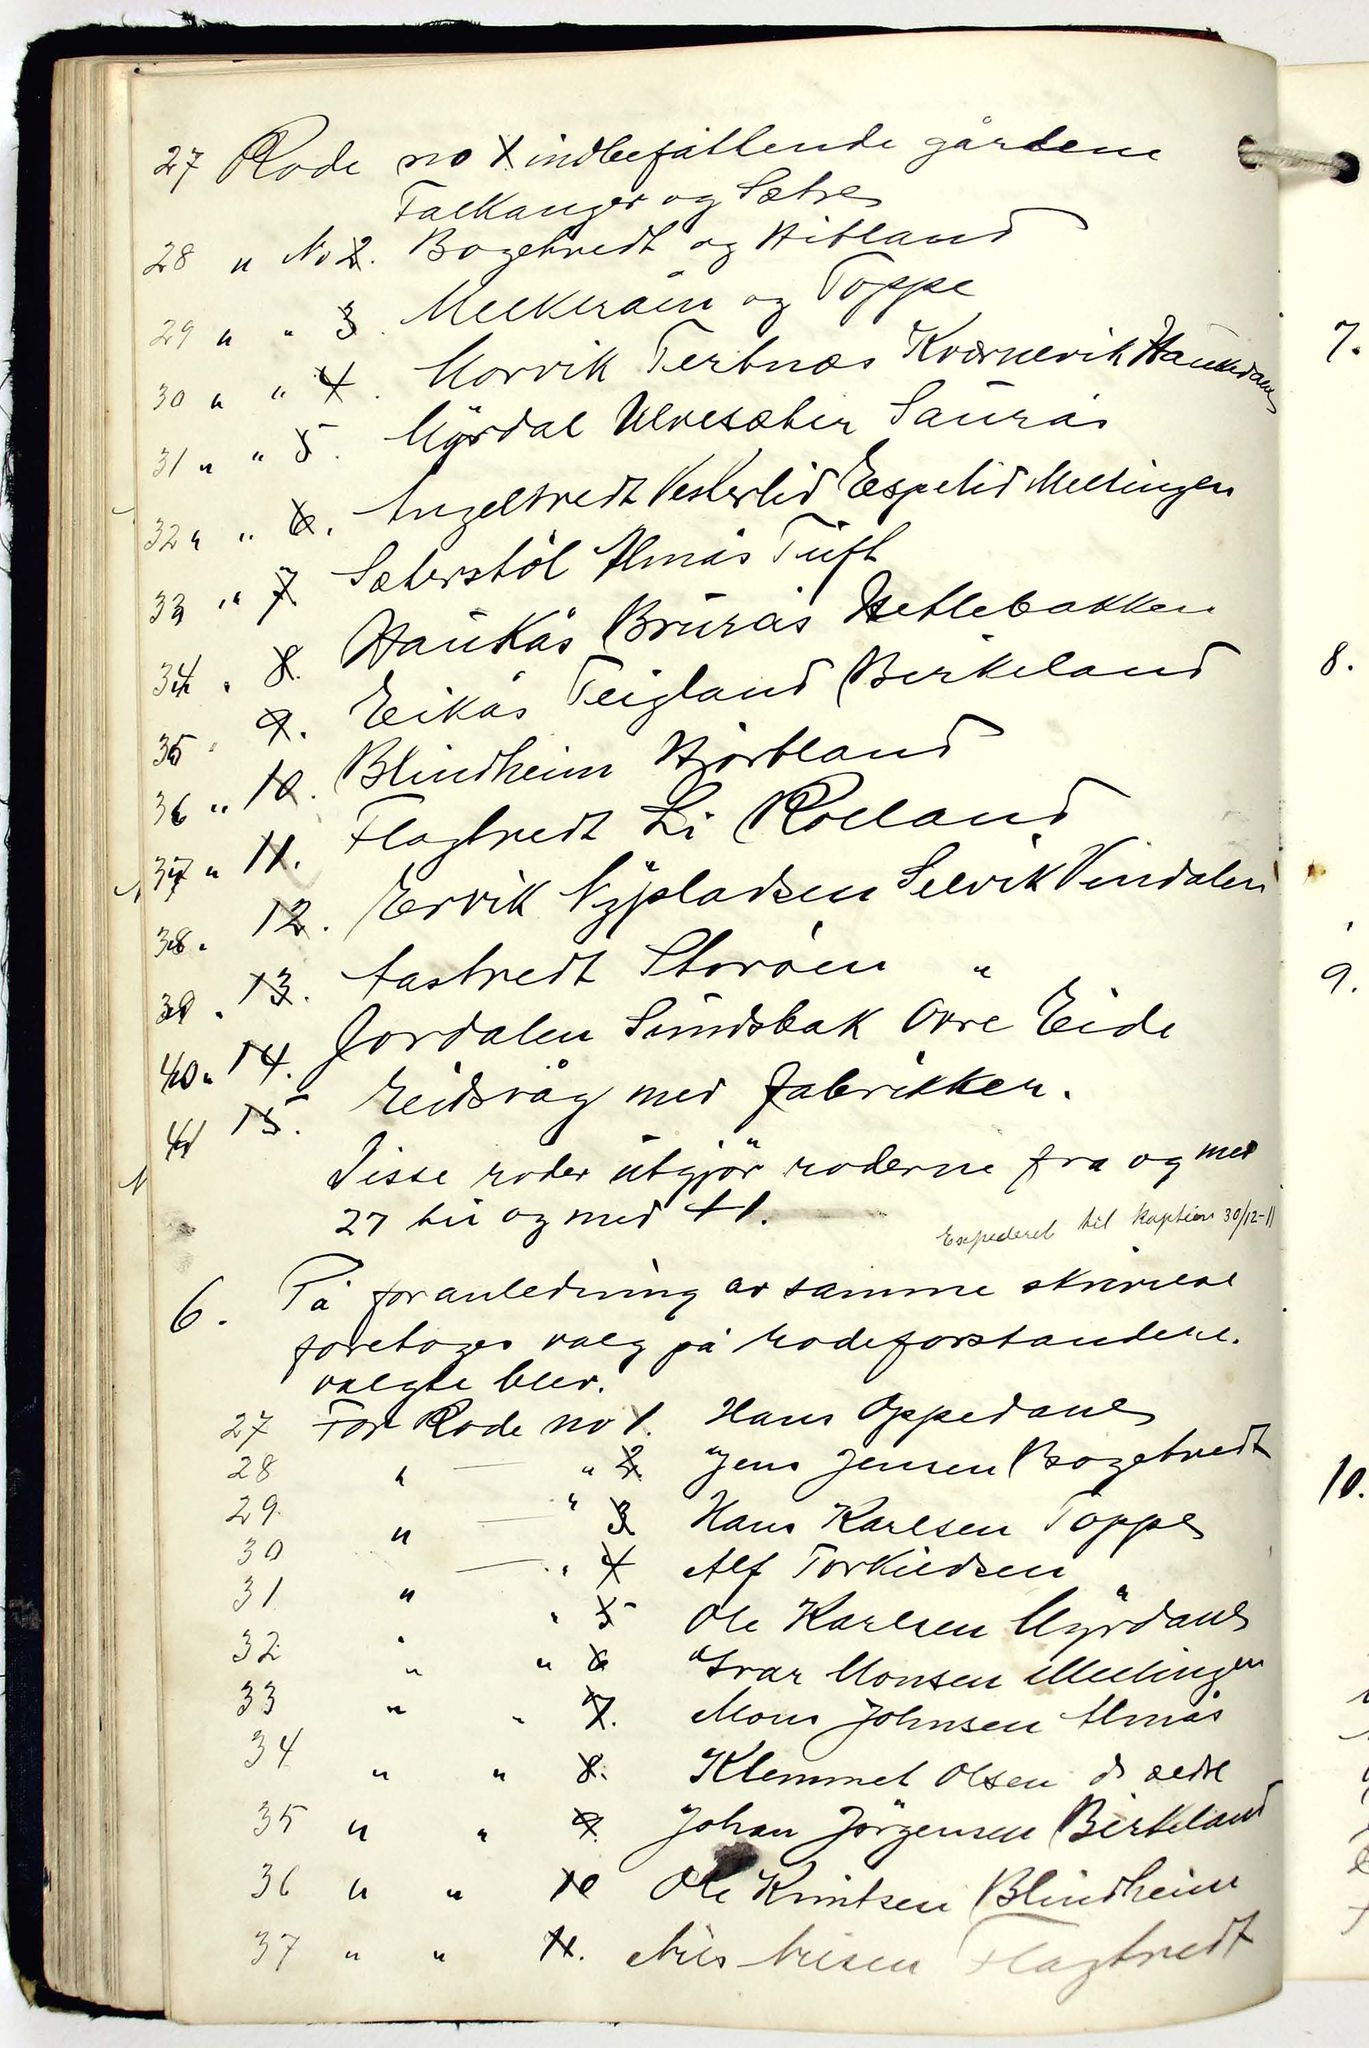 27 Rode no 1 indbefattende gårdene
Falkanger og Sætre
28 " No 2. Bogetvedt og Hitland
29 " " 3. Mellkråen og Toppe
30 " " 4. Morvik Tertnæs Kværnevik Haukedal
31 " " 5. Myrdal Ulvesæter Saurås
32 " " 6. Angeltvedt Vesterlid Espelid Mellingen
33 " " 7 Sæterstöl Almås Tuft
34 " 8. Haukås Brurås Hetlebakken
35 " 9. Eikås Teigland Birkeland
36 " 10. Blindheim Hjortland
37 " 11. Flagtvedt Li Rolland
38 " 12. Ervik Nypladsen Selvik Vindalen
39 " 13. Aastvedt Storöen "
40 " 14. Jordalen Sundsbak Övre Eide
41 15. Eidsvåg med fabrikken.
Disse roder utgjör roderne fra og med
27 til og med 41.
Expederet til kaptein 30/12-11
6. På foranledning av samme skrivelse
foretoges valg på rodeforstandere.
valgte blev.
27 For Rode no 1. Hans Oppedal
28 " — " 2 Jens Jensen Bogetvedt
29 " — " 3 Hans Karlsen Toppe
30 " — " 4 Alf Torkildsen "
31 " " 5 Ole Karlsen Myrdal
32 " " 6 Ivar Monsen Mellingen
33 " " 7. Mons Johnsen Almås
34 " " 8. Klemmet Olsen
35 " " 9 Johan Jörgensen Birkeland
36 " " 10 Ole Knutsen Blindheim
37 " " 11. Nils Nilsen Flagtvedt
7.
8.
9.
10.